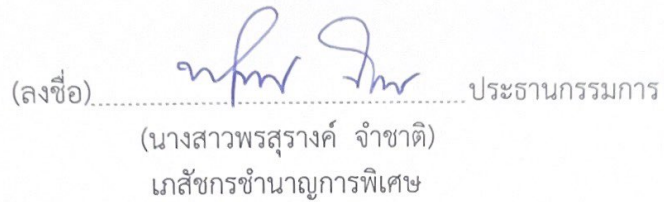 (ลงชื่อ)........................................ประธานกรรมการ
(นางสาวพรสุรางค์ จำชาติ)
เภสัชกรชำนาญการพิเศษ